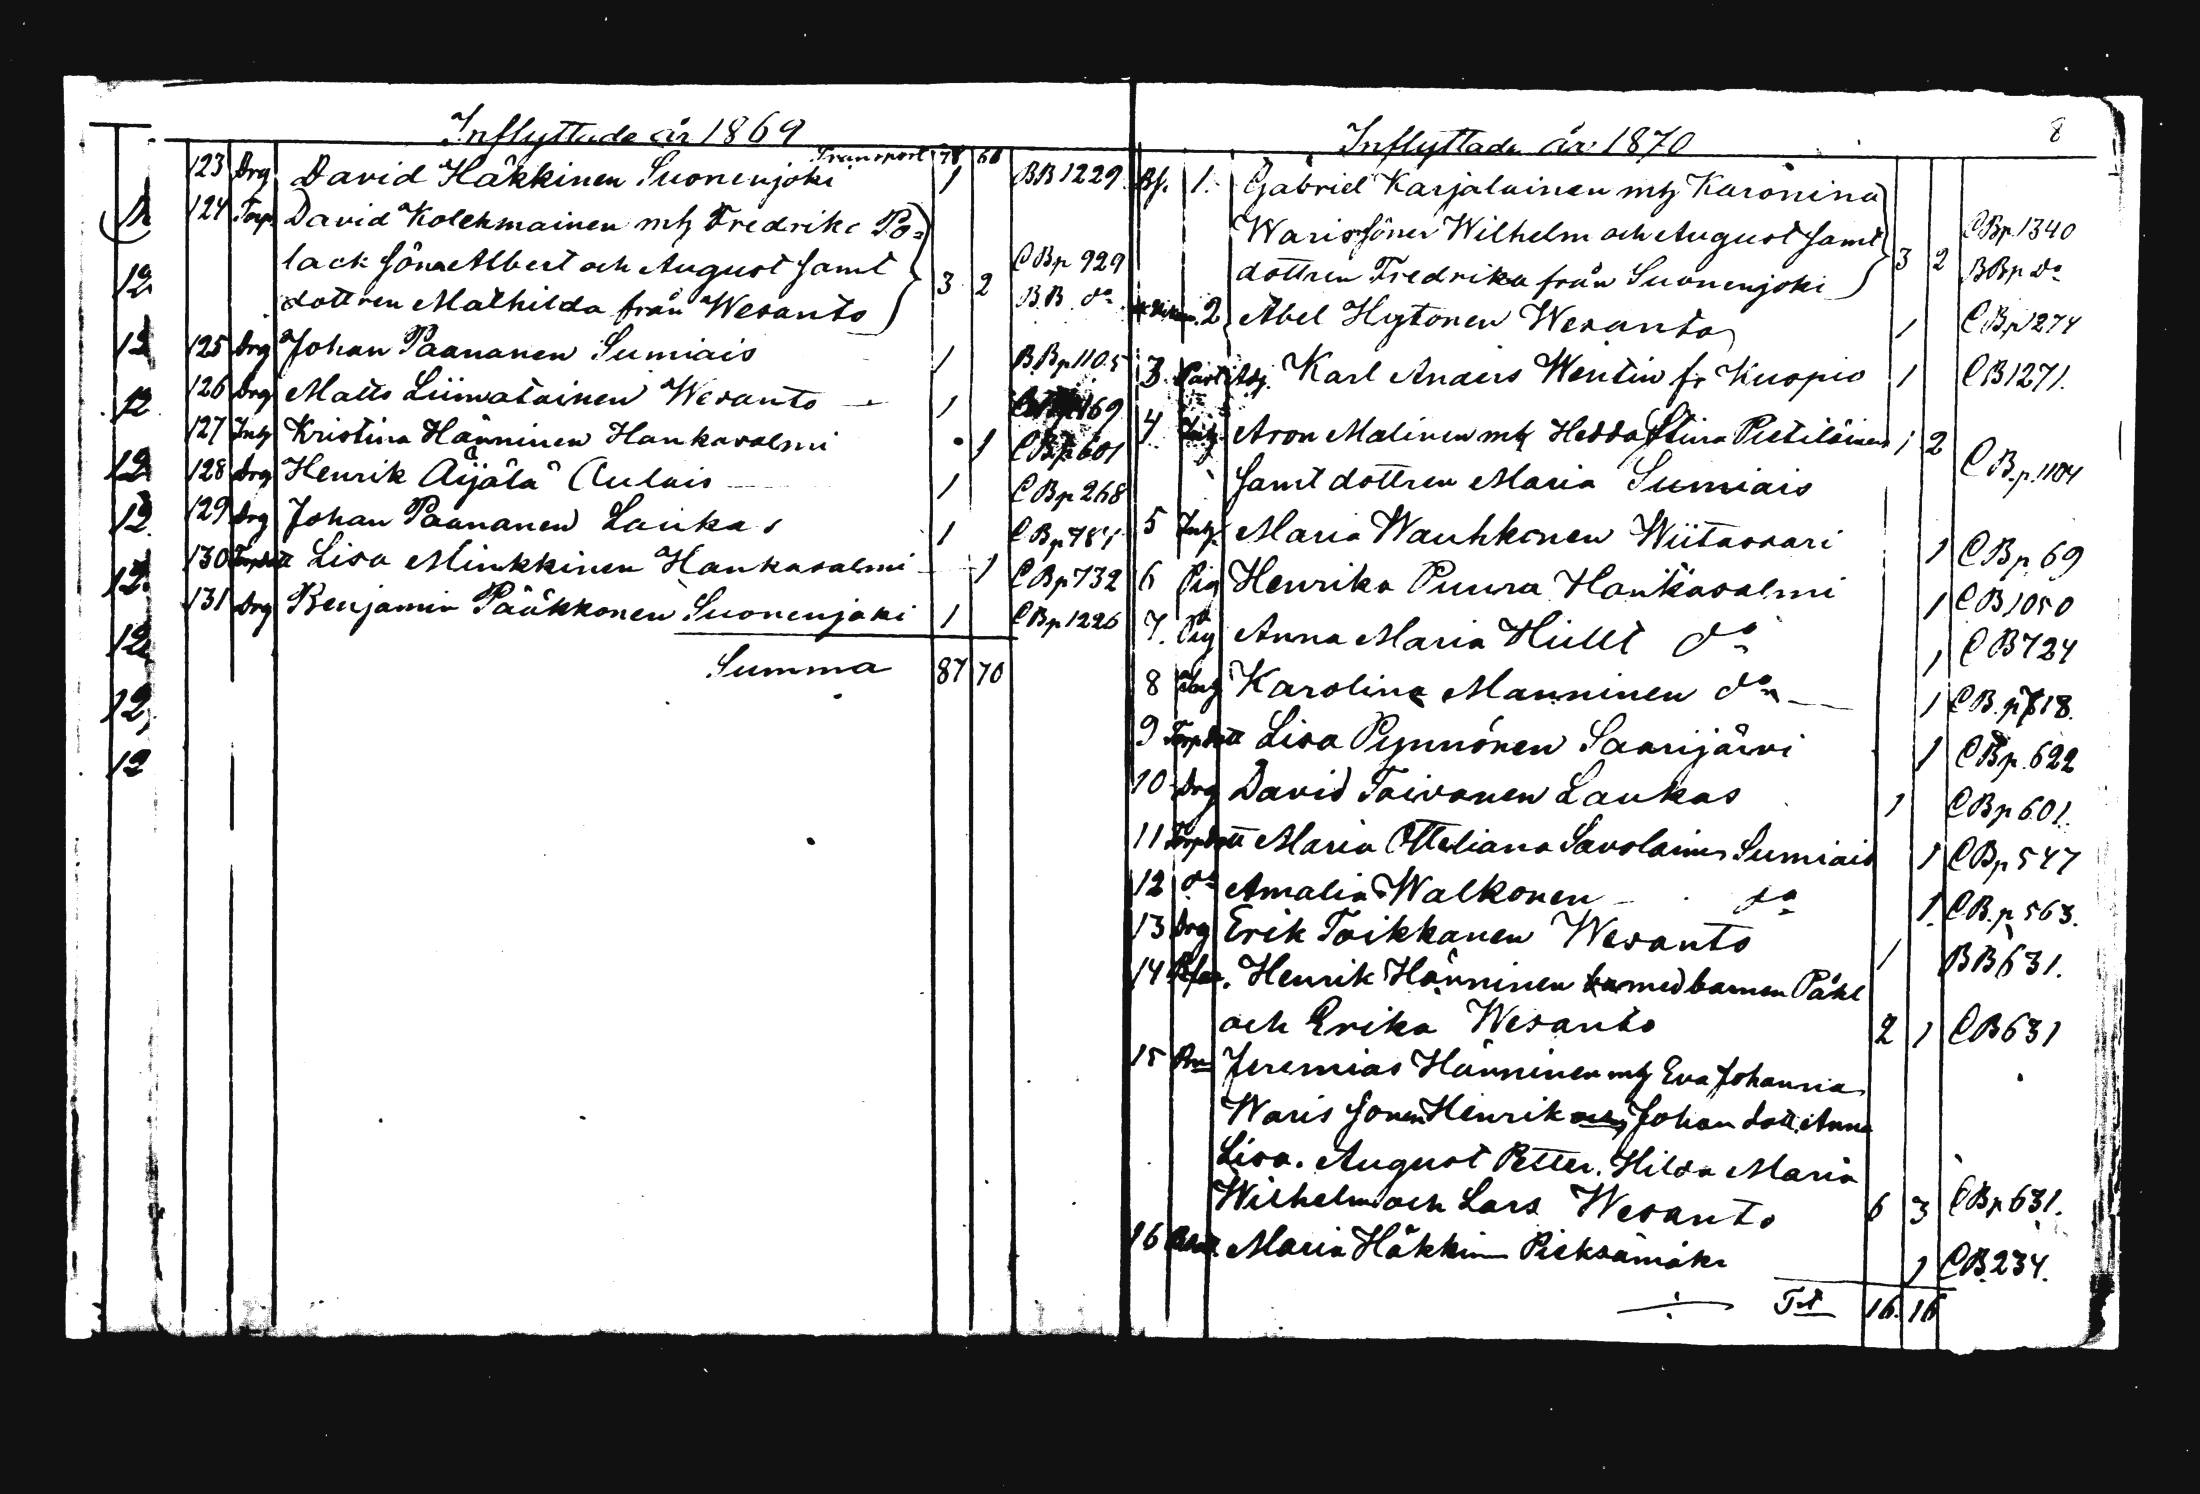 Inflyttade år 1869
Transport 78 66
123 Drg David Häkkinen Suonenjoki 1 BB 1229
124 Torp. David Kolehmainen mh Fredrika Po=
lack söner Albert och August samt CBp 929
dottren Mathilda från Wesanto 3 2 B.B. do
125 Drg Johan Paananen Sumiais 1 B.Bp 1105
126 Drg Matts Liimatainen Wesanto 1 169
127 Inh Kristina Hänninen Hankasalmi 1 CBp 601
128 Drg Henrik Äijälä Aulais 1 CBp 268
129 Drg Johan Paananen Laukas 1 CBp 781
130 Torpdott Lisa Minkkinen Hankasalmi 1 CBp 732
131 Drg Benjamin Pääkkonen Suonenjoki 1 CBp 1226
Summa 87 70
12
12
12
12
12
12
12
12
12
12
Inflyttade år 1870
8
Bf. 1. Gabriel Karjalainen mh Karonina
Waris söner Wilhelm och August samt CBp 1340
dottren Fredrika från Suonenjoki 3 2 BBp do
2 Abel Hytönen Wesanto 1 CBp 1274
3 Past. Adj. Karl Anders Wentin fr Kuopio 1 CB 1271.
4 Inh Aron Malinen mh Hedda Stina Pietiläinen 1 2
samt dottren Maria Sumiais CB.p. 1104
5 Inh Maria Wauhkonen Wiitasaari 1 CBp 69
6 Pig Henrika Puura Hankasalmi 1 CB 1050
7. Pig Anna Maria Hullt do 1 CB 724
8 Karolina Manninen do 1 CB. p 718.
9 Torpdott Lisa Pynnönen Saarijärvi 1 CBp. 622
10 Drg David Toivanen Laukas 1 CBp 601.
11 Torpdott Maria Otteliana Savolainen Sumiais 1 CBp 547
12 do Amalia Walkonen do 1. CB. p 563.
13 Drg Erik Toikkanen Wesanto 1 BB 631.
14 Henrik Hänninen med barnen Påhl
och Erika Wesanto 2 1 CB 631
15 Jeremias Hänninen mh Eva Johanna
Waris sonen Henrik och Johan dott. Anna
Lisa. August Petter. Hilda Maria
Wilhelm och Lars Wesanto 6 3 CBp 631.
16 Maria Häkkinen Pieksämäki 1 CB. 234.
Trt 16. 16